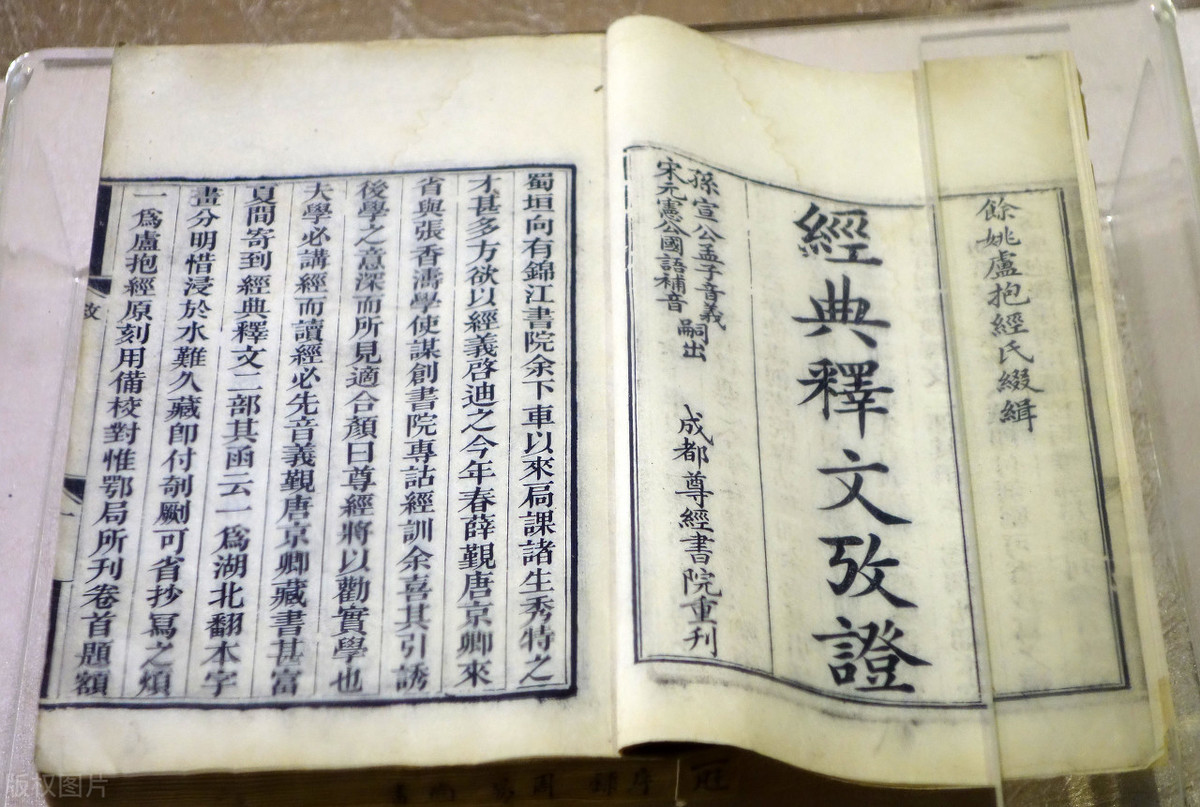 餘姚盧抱經氏綴緝
經典釋文攷證
孫宣公孟子音義
宋元憲公國語補音
嗣出
成都尊經書院重刊
蜀垣向有錦江書院余下車以來扃課諸生秀特之
才甚多方欲以經義啓迪之今年春薛覲唐京卿來
省與張香濤學使謀創書院專詁經訓余喜其引誘
後學之意深而所見適合顏曰尊經將以勸實學也
夫學必講經而讀經必先音義覲唐京卿藏書甚富
夏間寄到經典釋文二部其函云一爲湖北翻本字
畫分明惜浸於水難久藏卽付剞劂可省抄寫之煩
一爲盧抱經原刻用備校對惟鄂局所刊卷首題額
攷
一
版权图片